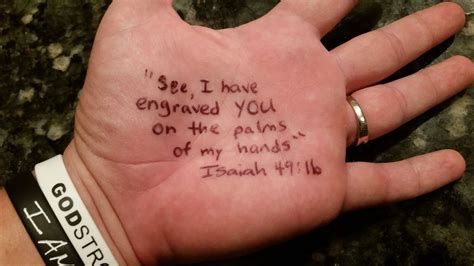 "See, I have
engraved YOU
on the palms
of my hands"
Isaiah 49:16
GODSTR
I AM